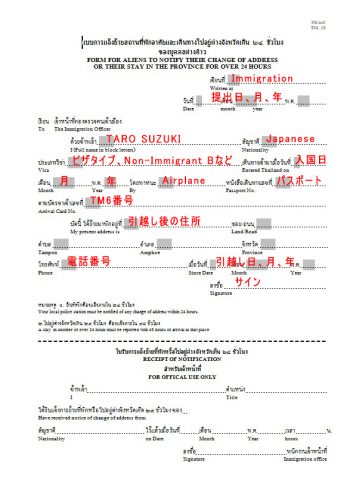 TM. 28
แบบการแจ้งย้ายสถานที่พักอาศัยและเดินทางไปอยู่ต่างจังหวัดเกิน ๒๔ ชั่วโมง
ของบุคคลต่างด้าว
FORM FOR ALIENS TO NOTIFY THEIR CHANGE OF ADDRESS
OR THEIR STAY IN THE PROVINCE FOR OVER 24 HOURS
เขียนที่ Immigration
Written at
วันที่ 提出日、月、年 พ.ศ.
Date Month Year
เรียน เจ้าหน้าที่กองตรวจคนเข้าเมือง
To The Immigration Officer
ด้วยข้าพเจ้า TARO SUZUKI สัญชาติ Japanese
I (Full name in block letters) Nationality
ประเภทวีซ่า ビザタイプ、Non-Immigrant Bなど เดินทางเข้ามาเมื่อวันที่ 入国日
Visa Entered Thailand on
เดือน 月 พ.ศ. 年 โดยพาหนะ Airplane หนังสือเดินทางเลขที่ パスポート
Month Year By Passport No.
ตามบัตรขาเข้าเลขที่ TM6番号
Arrival Card No.
บัดนี้ ได้ย้ายมาพักอยู่ที่ 引越し後の住所 ซอย/ถนน
My present address is Land/Road
ตำบล อำเภอ จังหวัด
Tambon Amphoe Province
โทรศัพท์ 電話番号 เมื่อวันที่ 引越し日、月、年
Phone Since Date Month Year
ลงชื่อ サイン
Signature
Your local police station must be notified of any change of address within 24 hours.
ใบรับการแจ้งย้ายที่พักหรือไปอยู่ต่างจังหวัดเกิน ๒๔ ชั่วโมง
RECEIPT OF NOTIFICATION
สำหรับเจ้าหน้าที่
FOR OFFICAL USE ONLY
ข้าพเจ้า ตำแหน่ง
I Title
ได้รับแจ้งการย้ายที่พักหรือไปอยู่ต่างจังหวัดเกิน ๒๔ ชั่วโมงของ
Have received notice of change of address from
สัญชาติ ไว้แล้วเมื่อวันที่ เดือน พ.ศ. เวลา น.
Nationality on Date Month Year hours
ลงชื่อ พนักงานเจ้าหน้าที่
Signature Immigration officer